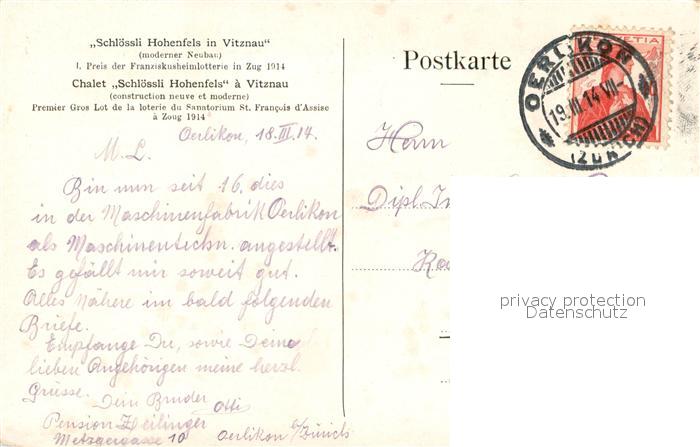 „Schlössli Hohenfels in Vitznau"
(moderner Neubau)
I. Preis der Franziskusheimlotterie in Zug 1914
Chalet „Schlössli Hohenfels" à Vitznau
(construction neuve et moderne)
Premier Gros Lot de la loterie du Sanatorium St. François d'Assise
à Zoug 1914
Oerlikon, 18.III.14.
M. L.
Bin nun seit 16. dies
in der Maschinenfabrik Oerlikon
als Maschinentechn. angestellt.
Es gefällt mir soweit gut.
Alles Nähere im bald folgenden
Briefe.
Empfange Du, sowie Deine
lieben Angehörigen meine herzl.
Grüsse.
Dein Bruder
Otti
Pension Heilinger
Metzgergasse 10 Oerlikon b/Zürich
Postkarte
HELVETIA
OERLIKON
19.III.14.VII-
(ZÜRICH)
Herrn
Dipl. In
privacy protection
Datenschutz